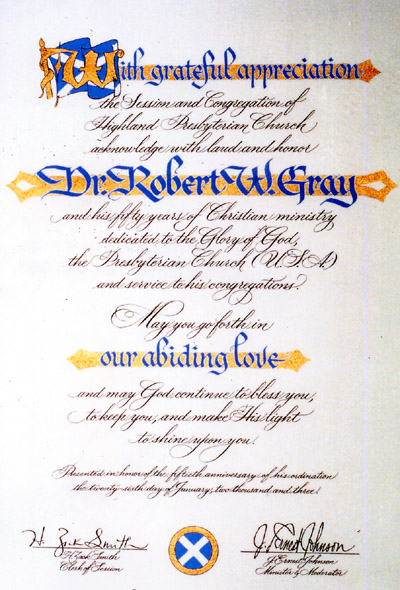 With grateful appreciation
the Session and Congregation of
Highland Presbyterian Church
acknowledge with laud and honor
Dr. Robert W. Gray
and his fifty years of Christian ministry
dedicated to the Glory of God,
the Presbyterian Church (U.S.A.)
and service to his congregations.
May you go forth in
our abiding love
and may God continue to bless you,
to keep you, and make His light
to shine upon you.
Presented in honor of the fiftieth anniversary of his ordination
the twenty-sixth day of January, two thousand and three.
H. Zack Smith
H Zack Smith
Clerk of Session
J. Ernest Johnson
J. Ernest Johnson
Minister & Moderator